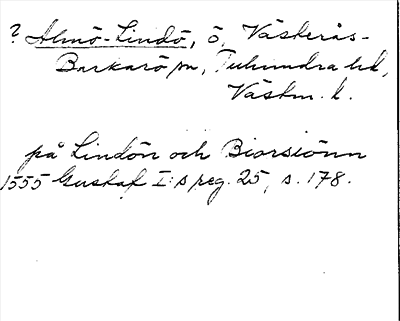 ? Almö-Lindö, ö, Västerås-
Barkarö sn, Tuhundra hd,
Västm. l.
på Lindön och Biorsiönn
1555 Gustaf I:s reg. 25, s. 178.